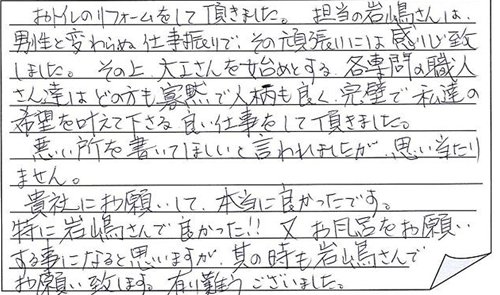 おトイレのリフォームをして頂きました。 担当の岩嶋さんは、
男性と変わらぬ仕事振りで、その頑張りには感心致
しました。その上、大工さんを始めとする、各専門の職人
さん達はどの方も寡黙で人柄も良く、完璧で私達の
希望を叶えて下さる良い仕事をして頂きました。
悪い所を書いてほしいと言われましたが、思い当たり
ません。
貴社にお願いして、本当に良かったです。
特に岩嶋さんで良かった!! 又お風呂をお願い
する事になると思いますが、其の時も岩嶋さんで
お願い致します。有り難うございました。